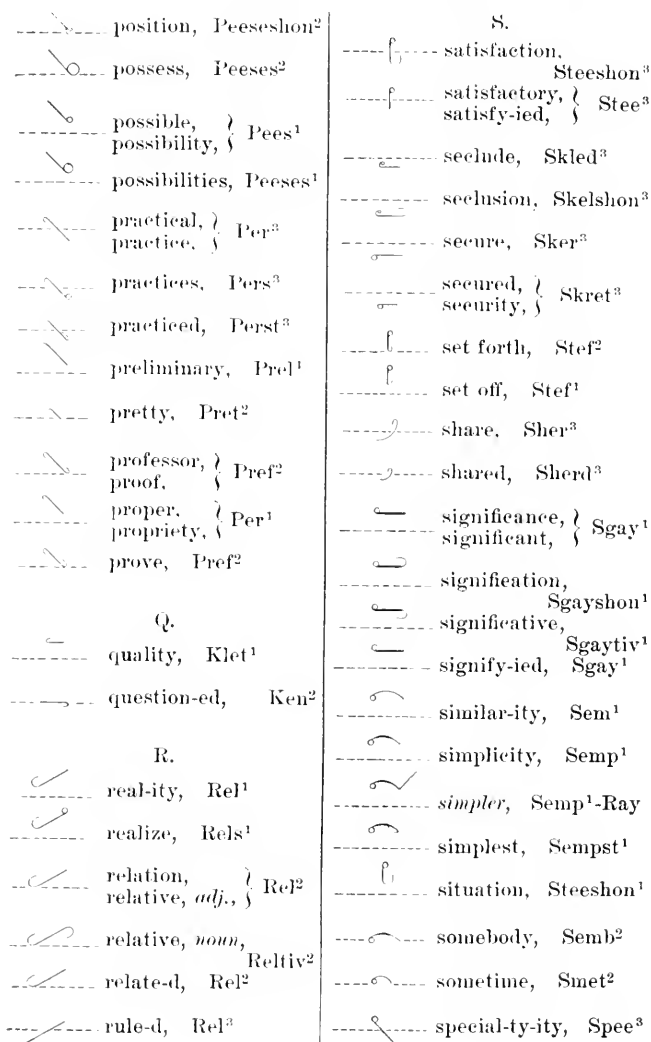 position, Peeseshon²
possess, Peeses²
possible, }
possibility, } Pees¹
possibilities, Peeses¹
practical, }
practice, } Per³
practices, Pers³
practiced, Perst³
preliminary, Prel¹
pretty, Pret²
professor, }
proof, } Pref²
proper, }
propriety, } Per¹
prove, Pref²
Q.
quality, Klet¹
question-ed, Ken²
R.
real-ity, Rel¹
realize, Rels¹
relation, }
relative, adj., } Rel²
relative, noun,
Reltiv²
relate-d, Rel²
rule-d, Rel³
S.
satisfaction,
Steeshon³
satisfactory, }
satisfy-ied, } Stee³
seclude, Skled³
seclusion, Skelshon³
secure, Sker³
secured, }
security, } Skret³
set forth, Stef²
set off, Stef¹
share, Sher³
shared, Sherd³
significance, }
significant, } Sgay¹
signification,
Sgayshon¹
significative,
Sgaytiv¹
signify-ied, Sgay¹
similar-ity, Sem¹
simplicity, Semp¹
simpler, Semp¹-Ray
simplest, Sempst¹
situation, Steeshon¹
somebody, Semb²
sometime, Smet²
special-ty-ity, Spee³